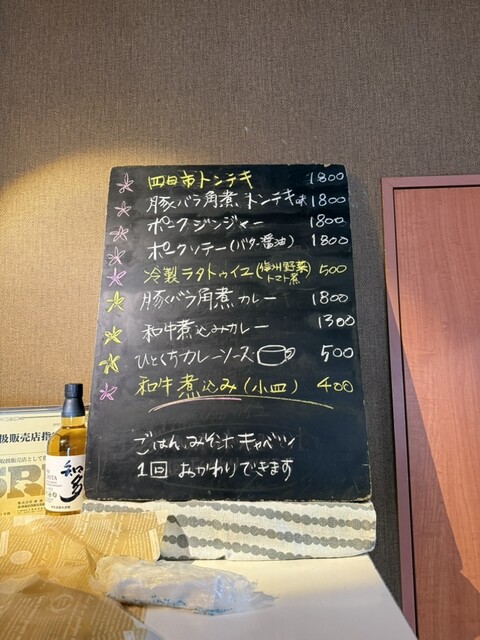 四日市トンテキ 1800
豚バラ角煮、トンテキ味 1800
ポークジンジャー 1800
ポークソテー(バター醤油) 1800
冷製ラタトゥイユ(信州野菜トマト煮) 500
豚バラ角煮カレー 1800
和牛煮込みカレー 1300
ひとくちカレーソース 500
和牛煮込み(小皿) 400
ごはん、みそ汁 キャベツ
1回 おかわりできます
扱販売店指
知多